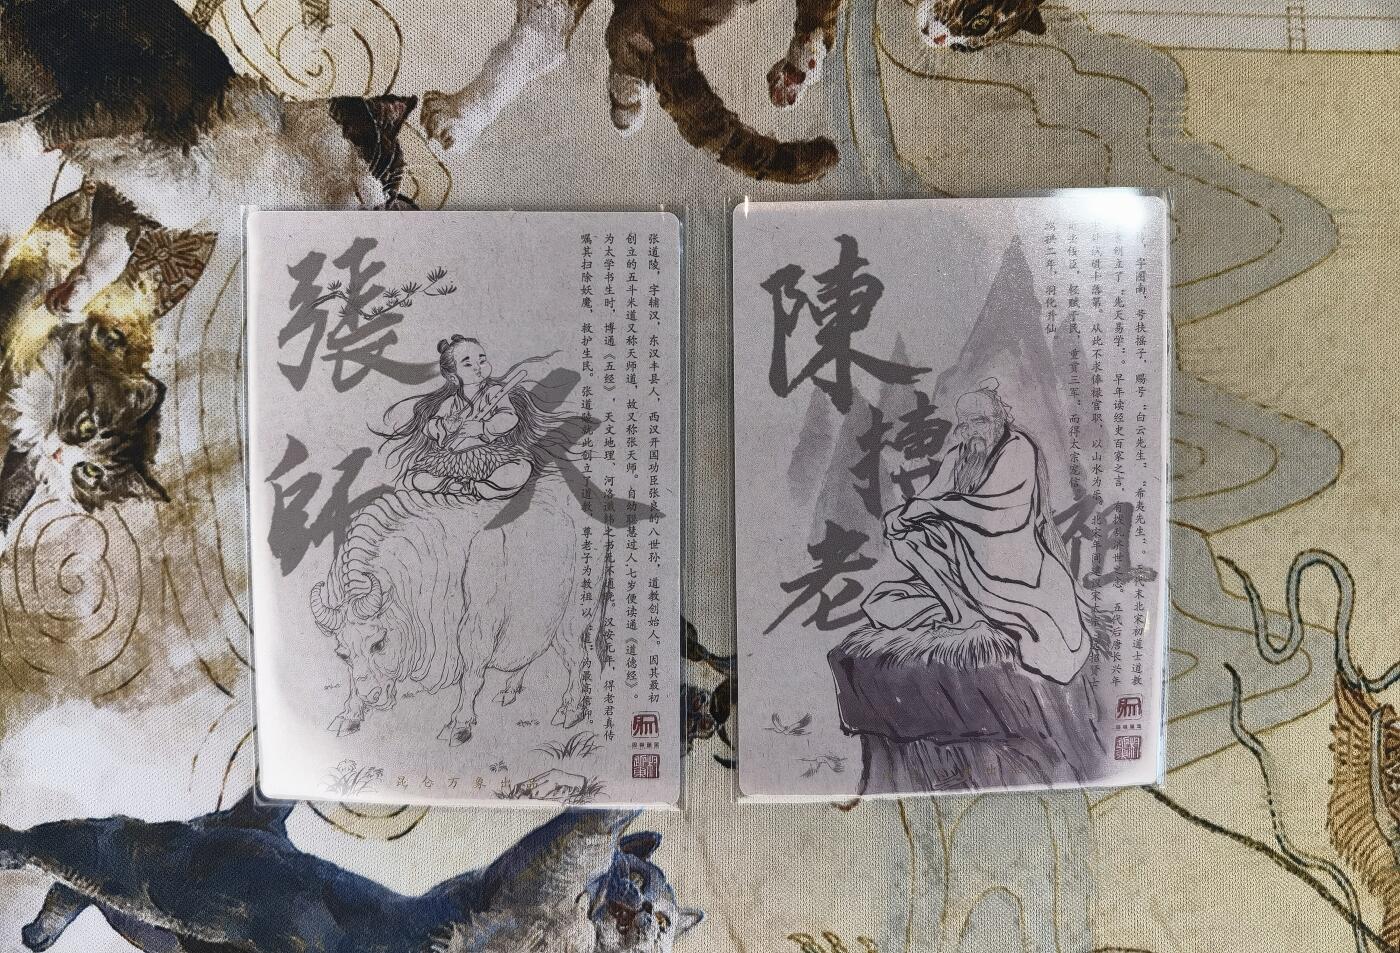 張天師
张道陵，字辅汉，东汉丰县人，西汉开国功臣张良的八世孙，道教创始人。因其最初
创立的五斗米道又称天师道，故又称张天师。自幼聪慧过人，七岁便读通《道德经》。
为太学书生时，博通《五经》，天文地理、河洛谶纬之书无不通晓。汉安元年，得老君真传
嘱其扫除妖魔，救护生民。张道陵就此创立了道教，尊老子为教祖，以“道”为最高信仰。
昆仑万象出品
陳摶老祖
字图南，号扶摇子，赐号“白云先生”“希夷先生”。五代末北宋初道士道教
创立了“先天易学”。早年读经史百家之言，有拨乱济世之志。五代后唐长兴年
落第。从此不求俸禄官职，以山水为乐。北宋年间
轻赋于民，重赏三军。而得太宗宠信
年，羽化升仙。